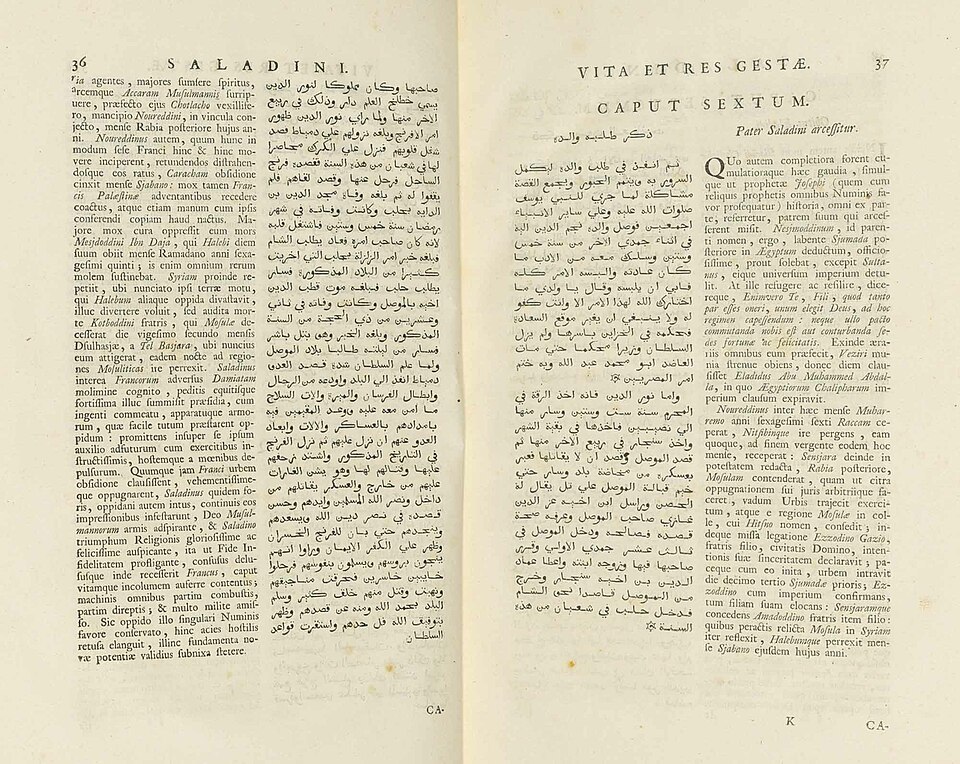 36
SALADINI.
ria agentes, majores ſumſere ſpiritus,
arcemque Accaram Muſulmannis ſurrip-
uere, præfecto ejus Chotlacho vexillife-
ro, mancipio Noureddini, in vincula con-
jecto, menſe Rabia poſteriore hujus an-
ni. Noureddinus autem, quum hunc in
modum ſeſe Franci hinc & hinc mo-
vere inciperent, retundendos diſtrahen-
doſque eos ratus, Caracham obſidione
cinxit menſe Sjabano: mox tamen Fran-
cis Palæſtinæ adventantibus recedere
coactus, atque etiam manum cum ipſis
conferendi copiam haud nactus. Ma-
jore mox cura oppreſſit eum mors
Mesjdoddini Ibn Daja, qui Halebi diem
ſuum obiit menſe Ramadano anni ſexa-
geſimi quinti; is enim omnium rerum
molem ſuſtinebat. Syriam proinde re-
petiit, ubi nunciato ipſi terræ motu,
qui Halebum aliaque oppida divaſtavit,
illuc divertere voluit, ſed audita mor-
te Kotboddini fratris, qui Moſulæ de-
ceſſerat die vigeſimo ſecundo menſis
Dſulhasjæ, a Tel Basjara, ubi nuncius
eum attigerat, eadem nocte ad regio-
nes Moſuliticas ire perrexit. Saladinus
interea Francorum adverſus Damiatam
molimine cognito, peditis equitiſque
fortiſſima illuc ſummiſit præſidia, cum
ingenti commeatu, apparatuque armo-
rum, quæ facile tutum præſtarent op-
pidum: promittens inſuper ſe ipſum
auxilio adfuturum cum exercitibus in-
ſtructiſſimis, hoſtemque a mœnibus de-
pulſurum. Quumque jam Franci urbem
obſidione clauſiſſent, vehementiſſime-
que oppugnarent, Saladinus quidem fo-
ris, oppidani autem intus, continuis eos
impreſſionibus infeſtarunt, Deo Muſul-
mannorum armis adſpirante, & Saladino
triumphum Religionis glorioſiſſime ac
feliciſſime auſpicante, ita ut Fide In-
fidelitatem profligante, confuſus delu-
ſuſque inde receſſerit Francus, caput
vitamque incolumem auferre contentus;
machinis omnibus partim combuſtis,
partim direptis; & multo milite amiſ-
ſo. Sic oppido illo ſingulari Numinis
favore conſervato, hinc acies hoſtilis
retuſa elanguit, illinc fundamenta no-
væ potentiæ validius ſubnixa ſtetere.
صاحبها وكان مملوكا لنور الدين
يسمي خطلخ العلم دار وذلك في ربيع
الاخر منها ولما راي نور الدين ظهور
امر الافرنج وبلغه نزولهم علي دمياط قصد
شغل قلوبهم فنزل علي الكرك محاصرا
لها في شعبان من هذه السنة فقصده فرنج
الساحل فرحل عنها وقصد لقاهم فلم
يقفوا له ثم بلغه وفاة مجد الدين بن
الدايه بحلب وكانت وفاته في شهر
رمضان سنة خمس وستين فاشتغل قلبه
لانه كان صاحب امره فعاد يطلب الشام
فبلغه خبر امر الزلزلة بحلب التي اخربت
كثيرا من البلاد المذكورة فسار
يطلب حلب فبلغه موت قطب الدين
اخيه بالموصل وكانت وفاته في ثاني
وعشرين من ذي الحجة من السنة
المذكورة وبلغه الخبر وهو بتل باشر
فسار من ليلته طالبا بلاد الموصل
ولما علم السلطان شدة قصد العدو
دمياط انفذ الي البلد واودعه من الرجال
وابطال الفرسان والميرة والات السلاح
ما امن معه عليه ووعد المقيمين فيه
بامدادهم بالعساكر والالات وابعاد
العدو عنهم ان نزل عليهم ثم نزل الفرنج
في التاريخ المذكور واشتد زحفهم
عليها وقتالهم لها وهو يشن الغارات
عليهم من خارج والعسكر يقاتلهم من
داخل ونصر الله المسلمين وايدهم وحسن
قصده في نصر دين الله ويسعدهم
وينجدهم حتي بان للفرنج الخسران
وظهر علي الكفر الايمان وراوا انهم
ينجون بروسهم ويسلمون بنفوسهم فرحلوا
خايبين خاسرين فحرقت مناجيقهم
ونهبت وقتل منهم خلف كثير وسلم
البلد بحمد الله ومنه عن قصدهم وظهر
بتوفيق الله فل حدهم واستقرت قواعد
السلطان
CA-
VITA ET RES GESTÆ.
37
CAPUT SEXTUM.
ذكر طلبه والده
Pater Saladini arceſſitur.
ثم انفذ في طلب والده ليكمل
السرور به ويتم الحبور ويجمع القصة
مشاكلة لما جري للنبي يوسف
صلوات الله عليه وعلي ساير الانبياء
اجمعين فوصل والده نجم الدين اليه
في اثناء جمدي الاخر من سنة خمس
وستين وسلك معه من الادب ما
كان عادته والبسه الامر كله
فابي ان يلبسه وقال يا ولدي ما
اختارك الله لهذا الامر الا وانت كفو
له ولا ينبغي ان يغير موقع السعادة
فحكمه في الخزاين باسرها ولم يزل
السلطان وزيرا محكما حتي مات
العاضد ابو محمد عبد الله وبه ختم
امر المصريين
واما نور الدين فانه اخذ الرقة في
المحرم سنة ست وستين وسار منها
الي نصيبين فاخذها في بقية الشهر
واخذ سنجار في ربيع الاخر منها ثم
قصد الموصل وقصد ان لا يقاتلها فعبر
بعسكره من مخاضة بلد وسار حتي
خيم قبالة الموصل علي تل يقال له
الحصن وراسل ابن اخيه عز الدين
غازي صاحب الموصل وعرفه صحة
قصده فصالحه ودخل الموصل في
ثالث عشر جمدي الاولي وقرر
صاحبها فيها وزوجه ابنته واعطا عماد
الدين بن اخيه سنجار وخرج
من الموصل قاصدا نحو الشام
فدخل حلب في شعبان من هذه
السنة
QUo autem completiora forent cu-
mulatioraque hæc gaudia, ſimul-
que ut prophetæ Joſephi (quem cum
reliquis prophetis omnibus Numinis fa-
vor proſequatur) hiſtoria, omni ex par-
te, referretur, patrem ſuum qui arceſ-
ſerent miſit. Nesjmoddinum, id paren-
ti nomen, ergo, labente Sjumada po-
ſteriore in Ægyptum deductum, officio-
ſiſſime, prout ſolebat, excepit Sulta-
nus, eique univerſum imperium detu-
lit. At ille refugere ac reſilire, dice-
reque, Enimvero Te, Fili, quod tanto
par eſſes oneri, unum elegit Deus, ad hoc
regimen capeſſendum: neque ullo pacto
commutanda nobis eſt aut conturbanda ſe-
des fortunæ ac felicitatis. Exinde æra-
riis omnibus eum præfecit, Veziri mu-
nia ſtrenue obiens, donec diem clau-
ſiſſet Eladidus Abu Muhammed Abdal-
la, in quo Ægyptiorum Chalipharum im-
perium clauſum expiravit.
Noureddinus inter hæc menſe Muhar-
remo anni ſexageſimi ſexti Raccam ce-
perat, Nitſibinque ire pergens, eam
quoque, ad finem vergente eodem hoc
menſe, receperat: Sensjara deinde in
poteſtatem redacta, Rabia poſteriore,
Moſulam contenderat, quam ut citra
oppugnationem ſui juris arbitriique fa-
ceret, vadum Urbis trajecit exerci-
tum, atque e regione Moſulæ in col-
le, cui Hitſno nomen, conſedit; in-
deque miſſa legatione Ezzodino Gazio,
fratris filio, civitatis Domino, inten-
tionis ſuæ ſinceritatem declaravit; pa-
ceque cum eo inita, urbem intravit
die decimo tertio Sjumadæ prioris; Ez-
zoddino cum imperium confirmans,
tum filiam ſuam elocans: Sensjaramque
concedens Amadoddino fratris item filio:
quibus peractis relicta Moſula in Syriam
iter reflexit, Halebumque perrexit men-
ſe Sjabano ejuſdem hujus anni.
K
CA-